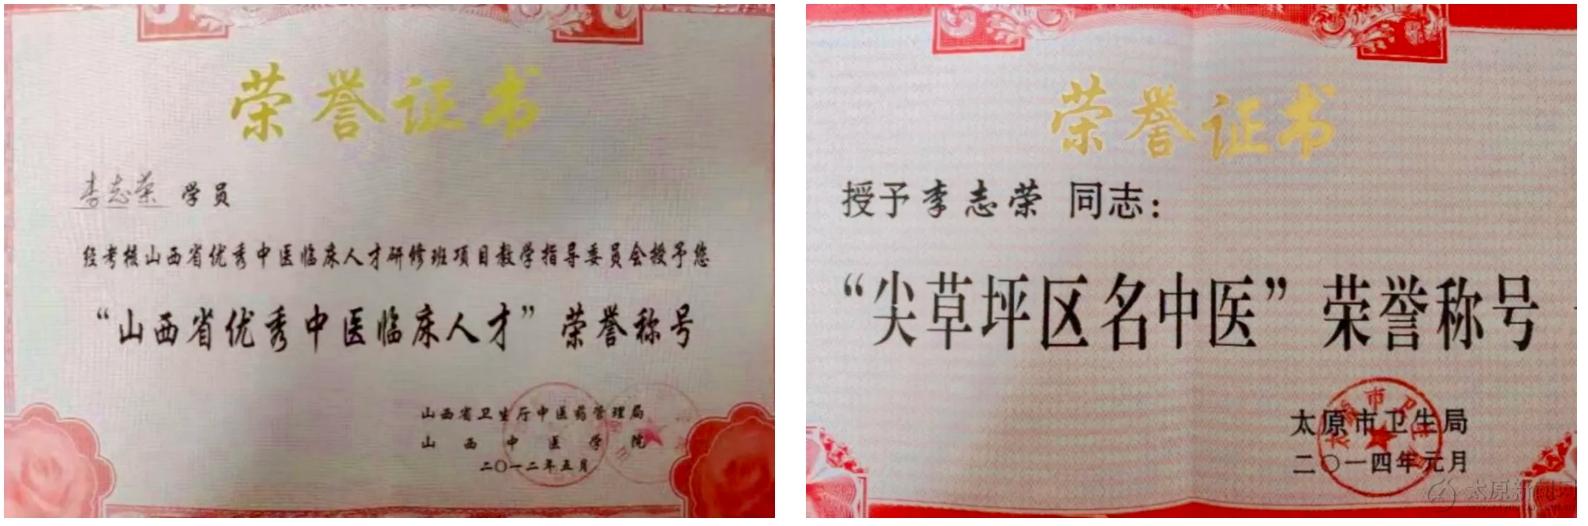 荣誉证书
李志荣 学员
经考核山西省优秀中医临床人才研修班项目教学指导委员会授予您
“山西省优秀中医临床人才”荣誉称号
山西省卫生厅中医药管理局
山西中医学院
二〇一二年五月
荣誉证书
授予李志荣 同志：
“尖草坪区名中医”荣誉称号
太原市卫生局
二〇一四年元月
太原新闻网